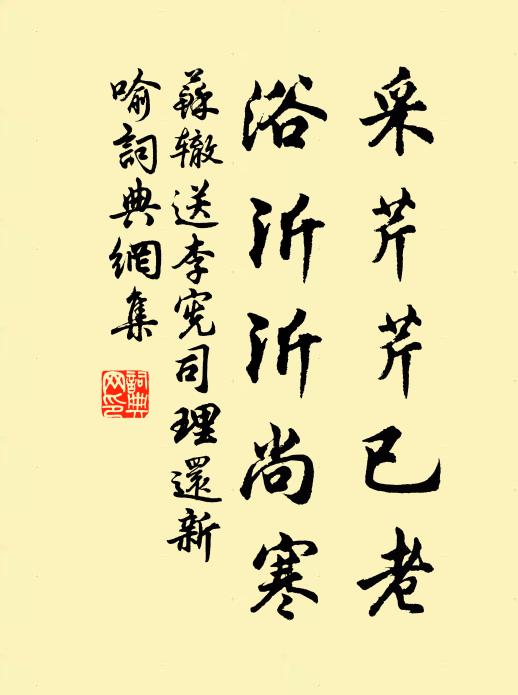 采芹芹已老
浴沂沂尚寒
蘇辙送李宪司理還新
喻詞典網集
詞典
网印